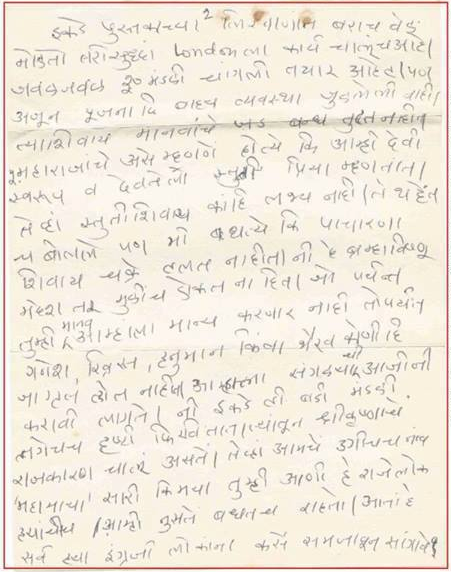 इकडे पुस्तकाच्या २ लिखाणात बराच वेळ
मोडतो तरीसुद्धा London ला कार्य चालूच आहे।
जवळजवळ मंडळी चांगली तयार आहेत। पण
अजून पूजनादि बाह्य व्यवस्था जुळलेली नाही।
त्याशिवाय मानवांचे जड बन्ध तुटत नाहीत
महाराजांचे असे म्हणणे होत्ये कि आम्ही देवी
स्वरूप व देवतेला स्तुती प्रिया म्हणतात।
तेव्हां स्तुतीशिवाय काहि लभ्य नाही। ते
च बोलले पण मी बघत्ये कि पाचारणा
शिवाय चक्रे हलत नाहीत। नी हे ब्रम्हा विष्णू
महेश तर मुळीच डोकत नाहित। जो पर्यन्त
तुम्ही मानव आम्हाला मान्य करणार नाही तोपर्यंत
गणेश, ख्रिस्त, हनुमान किंवा भैरव कोणीहि
जागृत होत नाहीत। सगळ्यांची आजीजी
करावी लागते। नी इकडे ती बडी मंडळी
लगेचच दृष्टी फिरवितात। त्यांतून श्रीकृष्णाचे
राजकारण चालूं असते। तेव्हां आमचे उगीचच नांव
'महामाया' सारी किमया तुम्ही आणी हे राजे लोक
ह्यांचीच। आम्ही नुसते बघतच राहतो। आतां हे
सर्व ह्या इंग्रजी लोकांना कसे समजावून सांगावे?